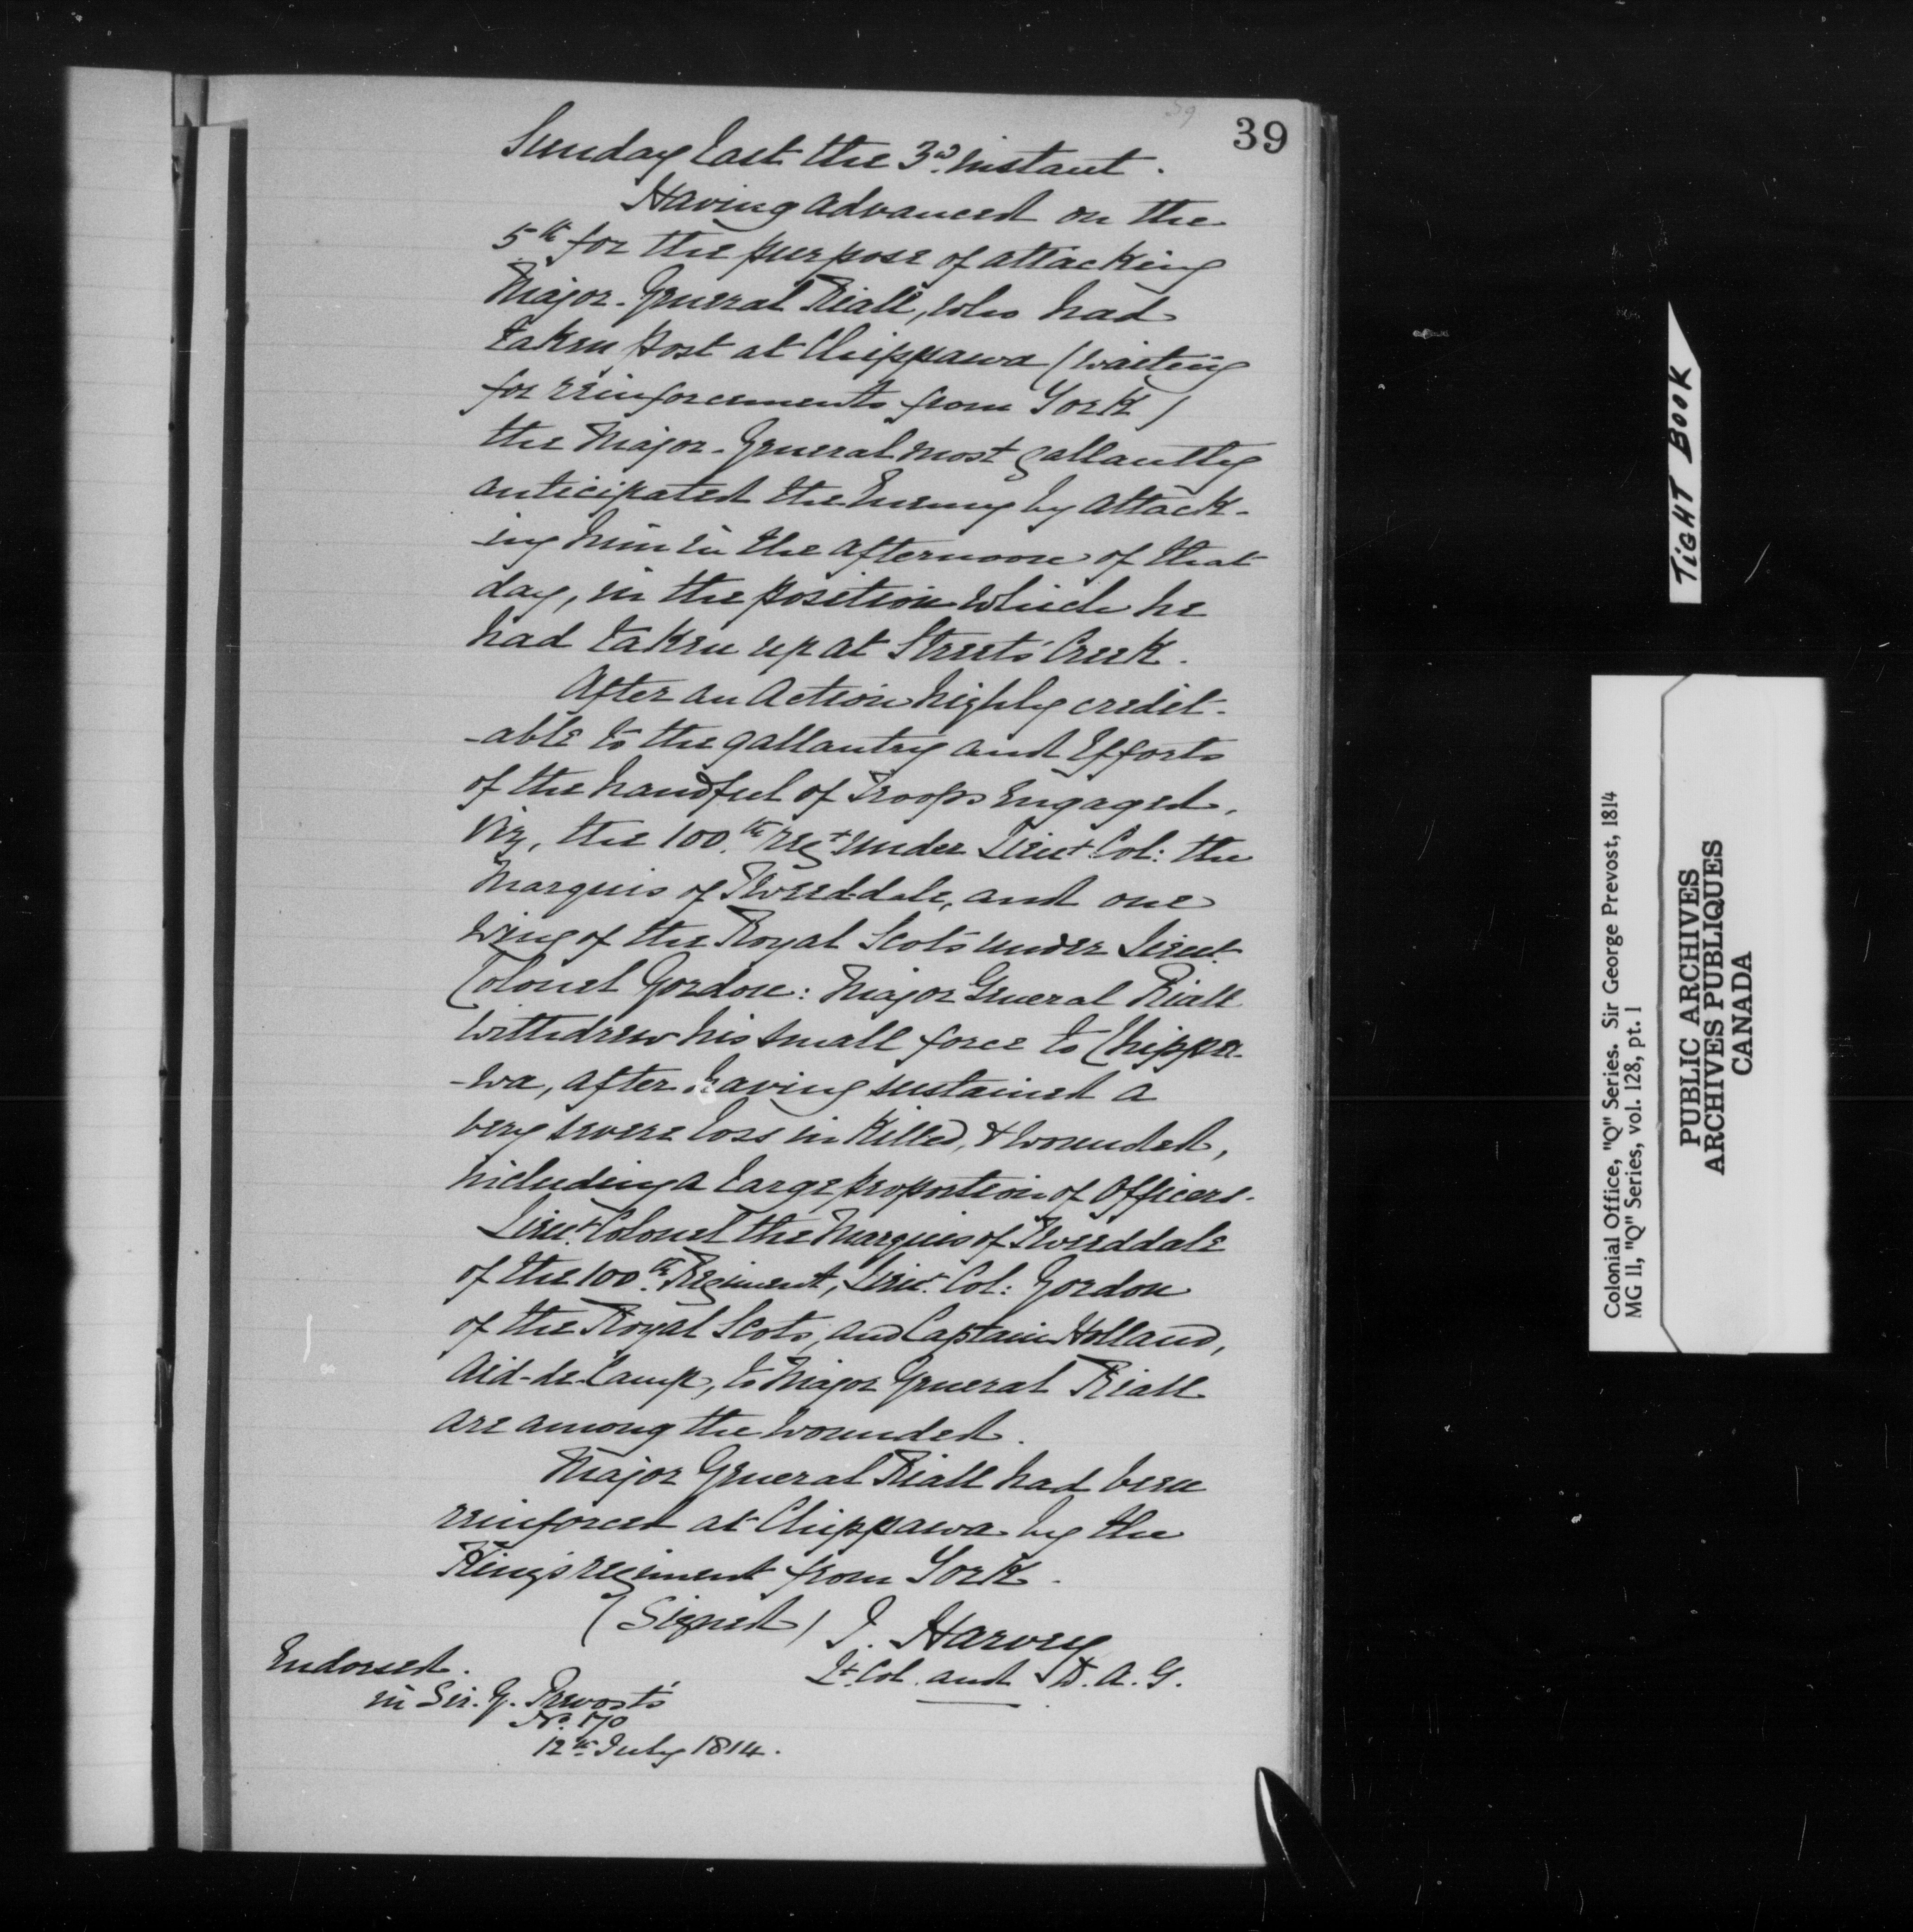 39
39
Sunday last the 3d. instant.
Having advanced on the
5th for the purpose of attacking
Major-General Riall, who had
taken post at Chippawa (waiting
for reinforcements from York)
the Major-General most gallantly
anticipated the Enemy by attack-
-ing him in the afternoon of that
day, in the position which he
had taken up at Streets' Creek.
After an Action highly credit-
-able to the gallantry and Efforts
of the handful of Troops Engaged,
viz, the 100.th regt under Lieut Col: the
Marquis of Tweeddale, and one
wing of the Royal Scots under Lieut.
Colonel Gordon: Major General Riall
withdrew his small force to Chippa-
-wa, after having sustained a
very severe loss in Killed, & wounded,
including a large proportion of Officers.
Lieut. Colonel the Marquis of Tweeddale
of the 100.th Regiment, Lieut. Col: Gordon
of the Royal Scots, and Captain Holland,
Aid-de-Camp, to Major General Riall
are among the wounded.
Major General Riall had been
reinforced at Chippawa by the
King's regiment from York.
(Signed) J. Harvey
Lt. Col. and D. A. G.
Endorsed.
in Sir. G. Prevost's
No. 170
12th July 1814.
TIGHT BOOK
Colonial Office, "Q" Series. Sir George Prevost, 1814
MG 11, "Q" Series, vol. 128, pt. 1
PUBLIC ARCHIVES
ARCHIVES PUBLIQUES
CANADA